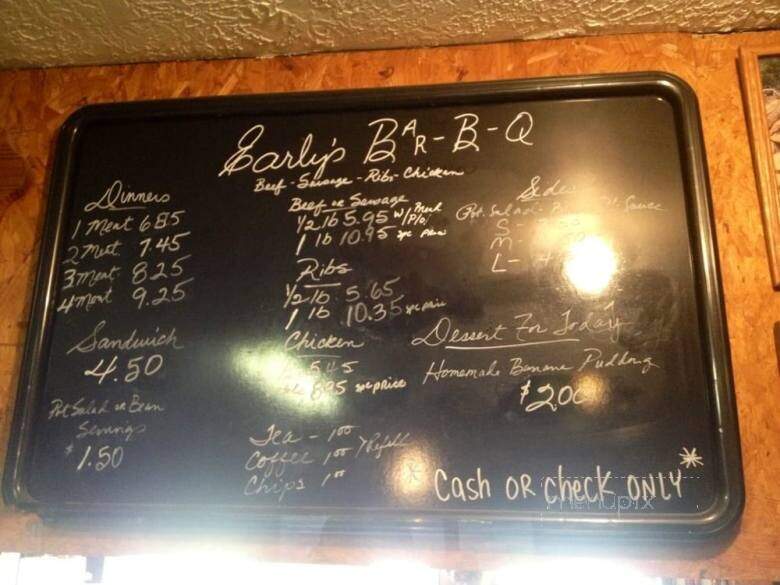 Early's BAR-B-Q
Beef - Sausage - Ribs - Chicken
Dinners
1 Meat 6.85
2 Meat 7.45
3 Meat 8.25
4 Meat 9.25
Sandwich
4.50
Pot Salad or Bean
Servings
$1.50
Beef or Sausage
1/2 lb 5.95
1 lb 10.95
Ribs
1/2 lb 5.65
1 lb 10.35 spc price
Chicken
5.45
8.95 spc price
Tea - 1.00
Coffee 1.00 > Refill
Chips 1.00
Sides
Pot. Salad - Sauce
S -
M -
L - 4
Dessert For Today
Homemade Banana Pudding
$2.00
* Cash OR check ONLY *
menupix